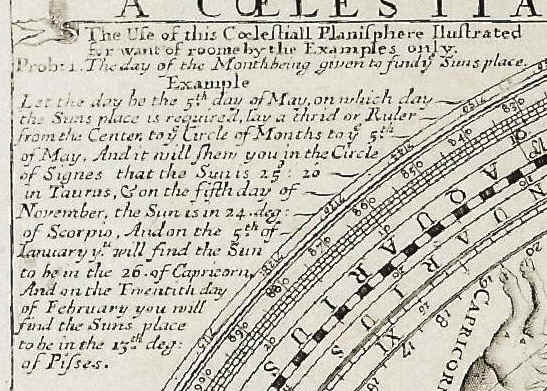 A CŒLESTIA
The Use of this Cœlestiall Planisphere Ilustrated
for want of roome by the Examples only.
Prob: 1. The day of the Month being given to find yͤ Suns place.
Example
Let the day be the 5th day of May, on which day
the Suns place is required, lay a thrid or Ruler
from the Center, to yͤ Circle of Months to yͤ 5th
of May, And it will shew you in the Circle
of Signes that the Sun is 25°: 20
in Taurus, & on the fifth day of
November, the Sun is in 24. deg:
of Scorpio, And on the 5th of
Ianuary yᵘ will find the Sun
to be in the 26. of Capricorn,
And on the Twentith day
of February you will
find the Suns place
to be in the 13th deg:
of Pisses.
AQUARIUS
CAPRICOR
20
19
18
17
16